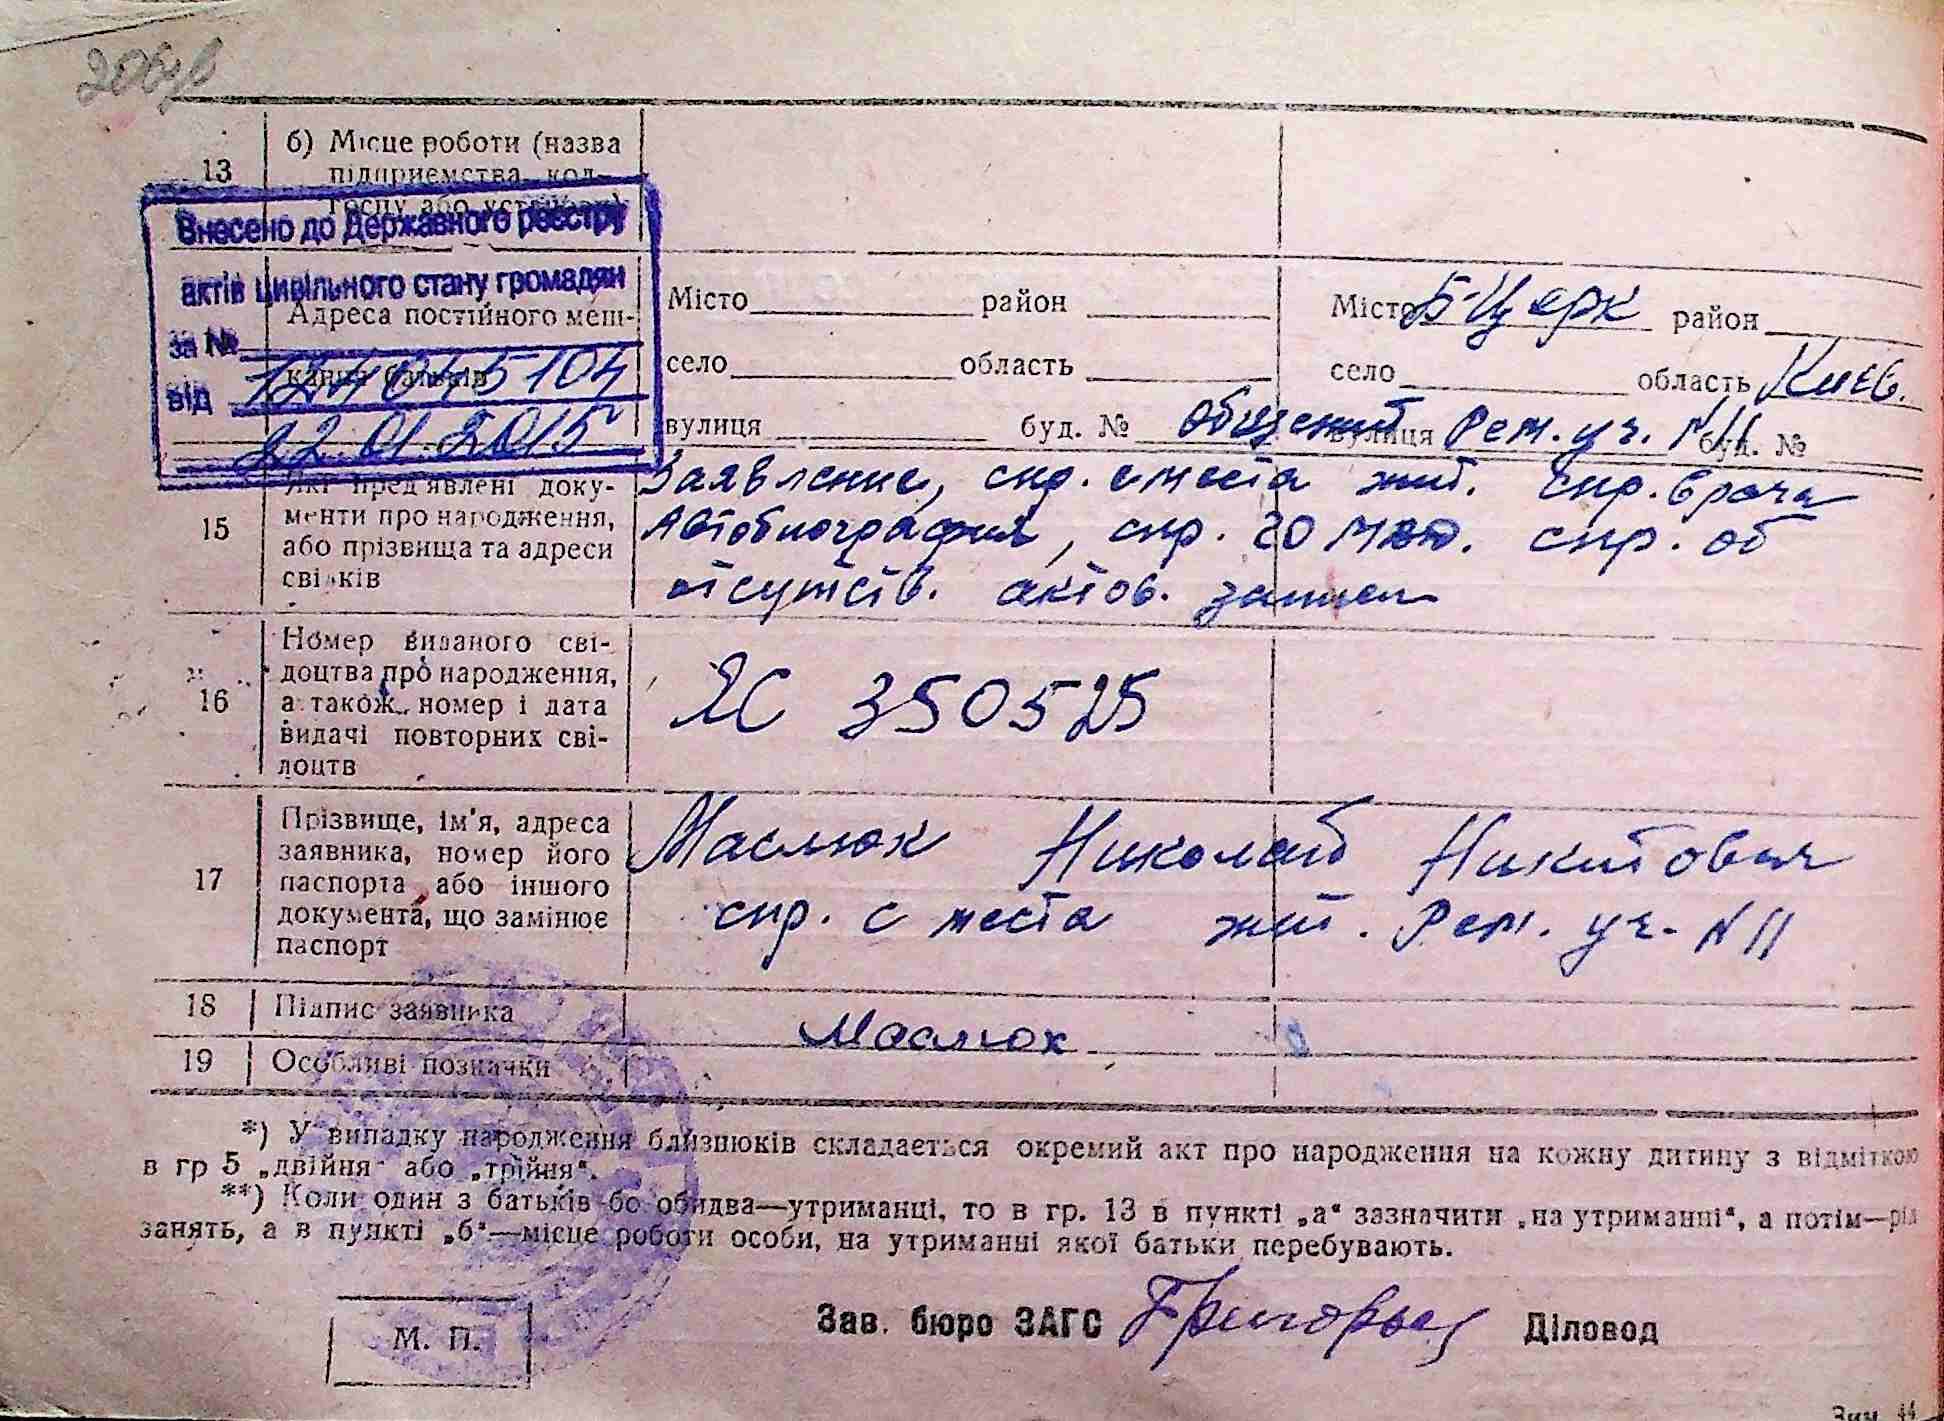 13
б) Місце роботи (назва
підприємства, кол-
госпу або установи)
Внесено до Державного реєстру
актів цивільного стану громадян
за №
від
22.01.2015
Адреса постійного меш-
кання батьків
Місто район
село область
вулиця буд. №
Місто Б-Церк район
село область Киев.
Общежит вулиця Рем. уч. N 11 буд. №
15
Які пред'явлені доку-
менти про народження,
або прізвища та адреси
свідків
Заявление, спр. с места жит. спр. врача
Автобиография, спр. ЗО спр. об
отсутств. актов. записи
16
Номер виданого сві-
доцтва про народження,
а також номер і дата
видачі повторних сві-
доцтв
ЯС 350525
17
Прізвище, ім'я, адреса
заявника, номер його
паспорта або іншого
документа, що замінює
паспорт
Маслюк Николай Никитович
спр. с места жит. Рем. уч. N 11
18 Підпис заявника
Маслюк
19 Особливі позначки
*) У випадку народження близнюків складається окремий акт про народження на кожну дитину з відміткою
в гр 5 „двійня" або „трійня".
**) Коли один з батьків бо обидва—утриманці, то в гр. 13 в пункті „а" зазначити „на утриманні", а потім—рід
занять, а в пункті „б"—місце роботи особи, на утриманні якої батьки перебувають.
М. П.
Зав. бюро ЗАГС Діловод